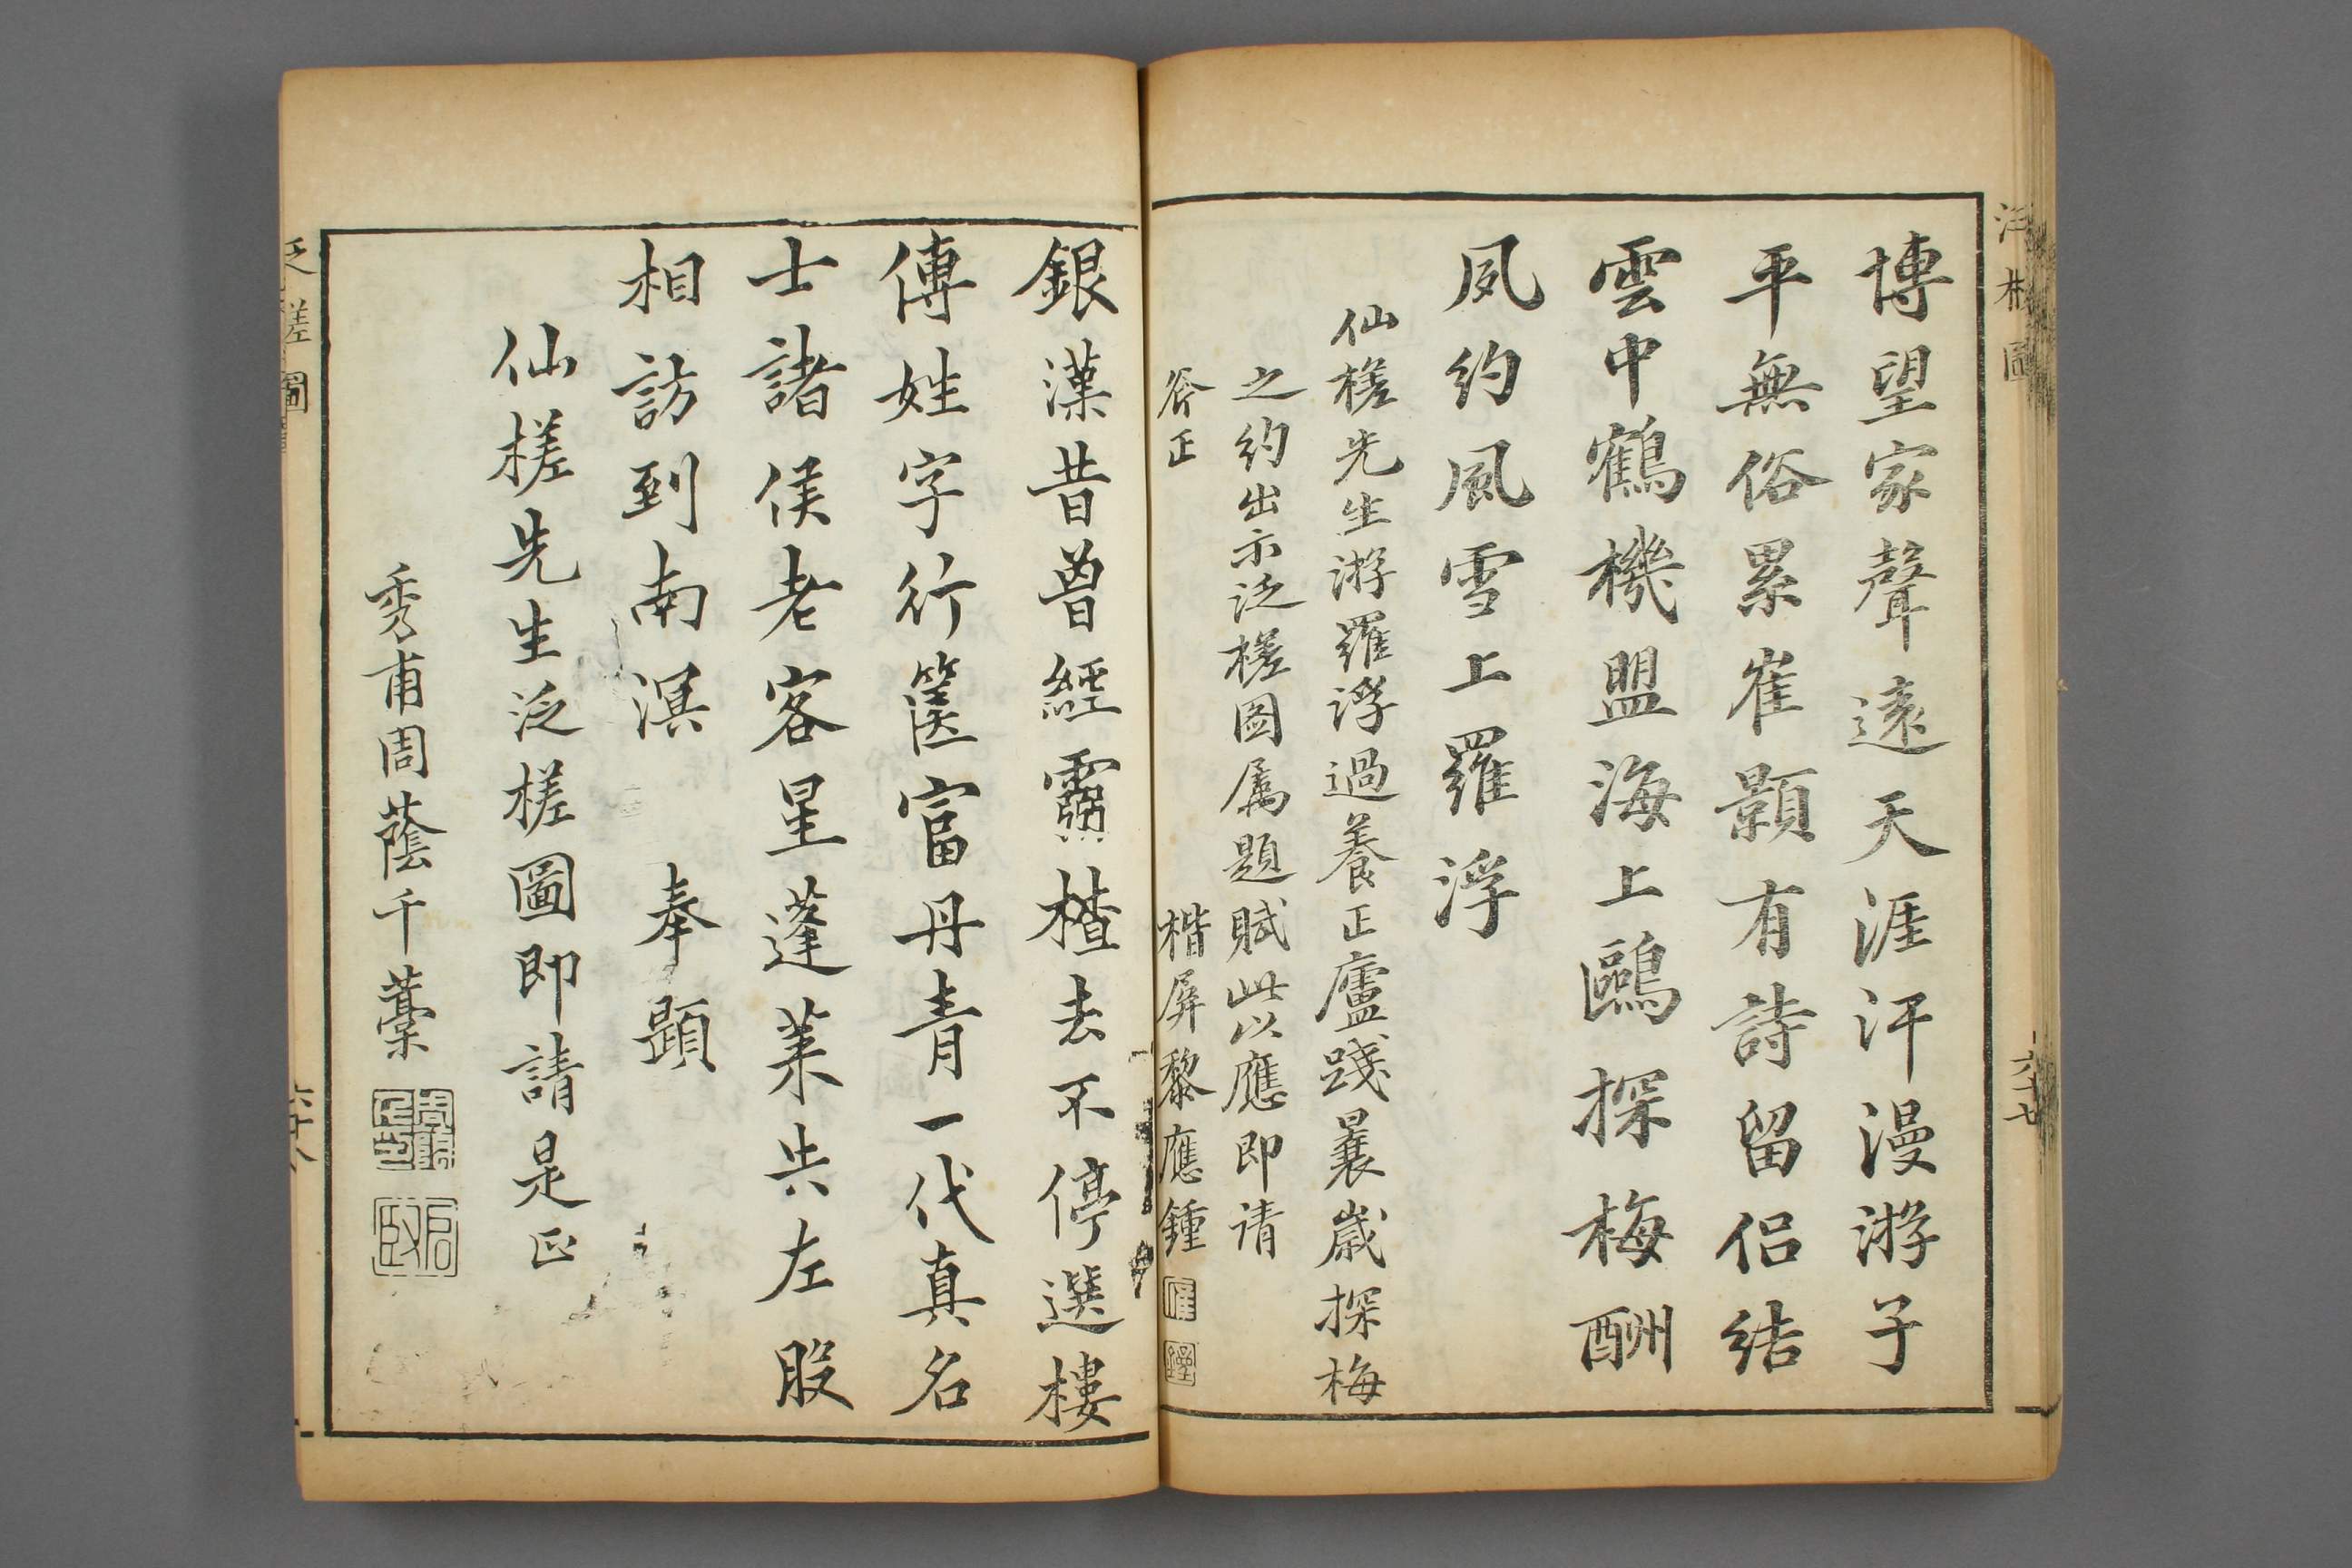 博望家聲遠天涯汗漫游子
平無俗累崔顥有詩留侶結
雲中鶴機盟海上鷗探梅酬
夙約風雪上羅浮
仙槎先生游羅浮過養正廬踐曩歲探梅
之約出示泛槎圖屬題賦此以應即请
斧正
楷屏黎應鍾
銀漢昔曾經靈楂去不停選樓
傳姓字行篋富丹青一代真名
士諸侯老客星蓬萊共左股
相訪到南溟 奉題
仙槎先生泛槎圖即請是正
秀甫周蔭千藁
槎圖
六十八
六十七